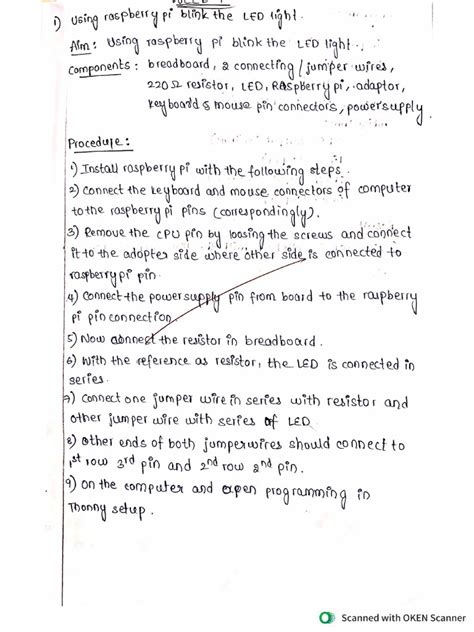 1) Using raspberry pi blink the LED light.
Aim: Using raspberry pi blink the LED light.
Components: breadboard, 2 connecting/jumper wires,
220Ω resistor, LED, Raspberry pi, adaptor,
keyboard & mouse pin connectors, power supply.
Procedure:
1) Install raspberry pi with the following steps.
2) Connect the keyboard and mouse connectors of computer
to the raspberry pi pins (correspondingly).
3) Remove the CPU pin by loosing the screws and connect
it to the adopter side where other side is connected to
raspberry pi pin.
4) Connect the power supply pin from board to the raspberry
pi pin connection.
5) Now connect the resistor in breadboard.
6) With the reference as resistor, the LED is connected in
series.
7) Connect one jumper wire in series with resistor and
other jumper wire with series of LED.
8) Other ends of both jumperwires should connect to
1st row 3rd pin and 2nd row 2nd pin.
9) On the computer and open programming in
Thonny setup.
Scanned with OKEN Scanner